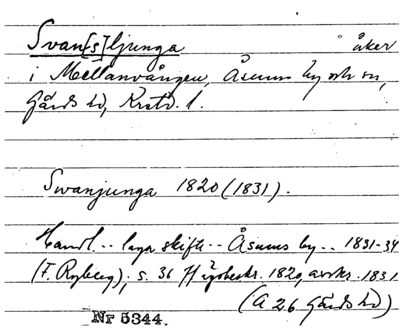 Svan[s]ljunga åker
i Mellanvången, Åsums by och sn,
Gärds hd, Krstd. l.
Svanjunga 1820 (1831).
Handl. .. laga skifte .. Åsums by .. 1831-34
(F. Ryberg); s. 36 Ägobeskr. 1820, avskr. 1831
(A 26 Gärds hd)
Nr 5344.